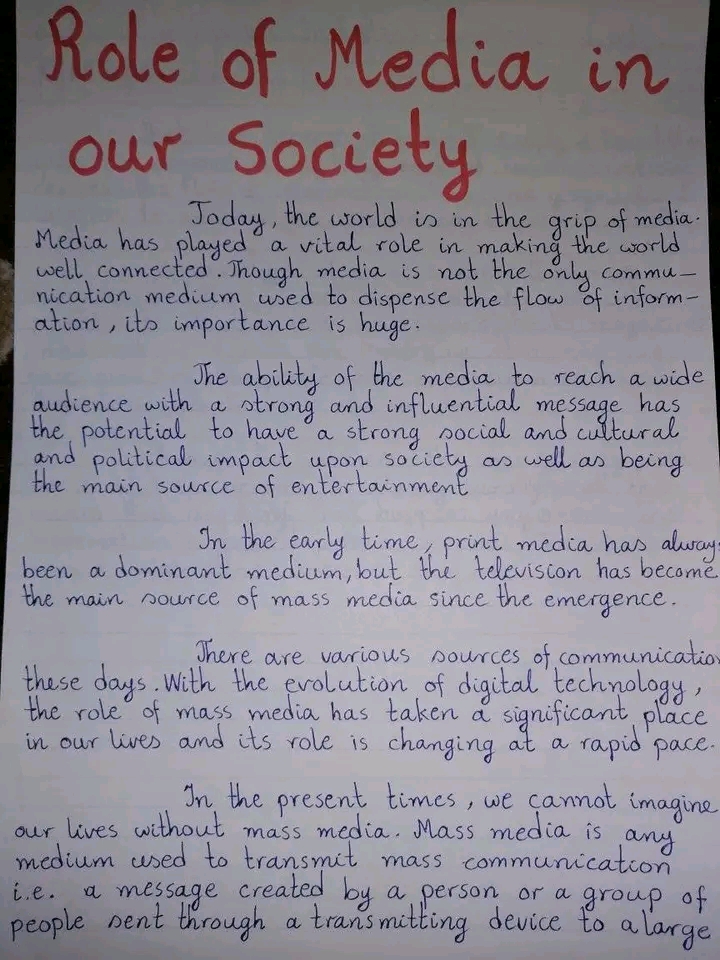 Role of Media in
our Society
Today, the world is in the grip of media.
Media has played a vital role in making the world
well connected. Though media is not the only commu-
nication medium used to dispense the flow of inform-
ation, its importance is huge.
The ability of the media to reach a wide
audience with a strong and influential message has
the potential to have a strong social and cultural
and political impact upon society as well as being
the main source of entertainment
In the early time, print media has always
been a dominant medium, but the television has become
the main source of mass media since the emergence.
There are various sources of communication
these days. With the evolution of digital technology,
the role of mass media has taken a significant place
in our lives and its role is changing at a rapid pace.
In the present times, we cannot imagine
our lives without mass media. Mass media is any
medium used to transmit mass communication
i.e. a message created by a person or a group of
people sent through a transmitting device to a large